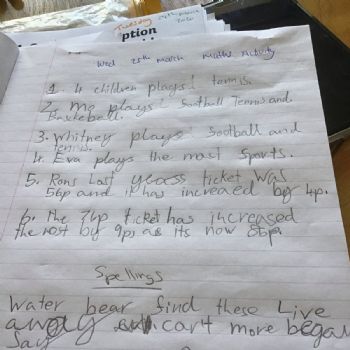 Tuesday
ption
Wed 25th March Maths Activity
1. 4 children plays! tennis.
2. Mo plays! football Tennis and
Basketball.
3. Whitney plays! football and
tennis.
4. Eva plays the most sports.
5. Rons Last years ticket was
56p and it has increased by 4p.
6. The 74p ticket has increased
the most by 9p as its now 86p.
Spellings
Water bear find these Live
away can't more began
Say